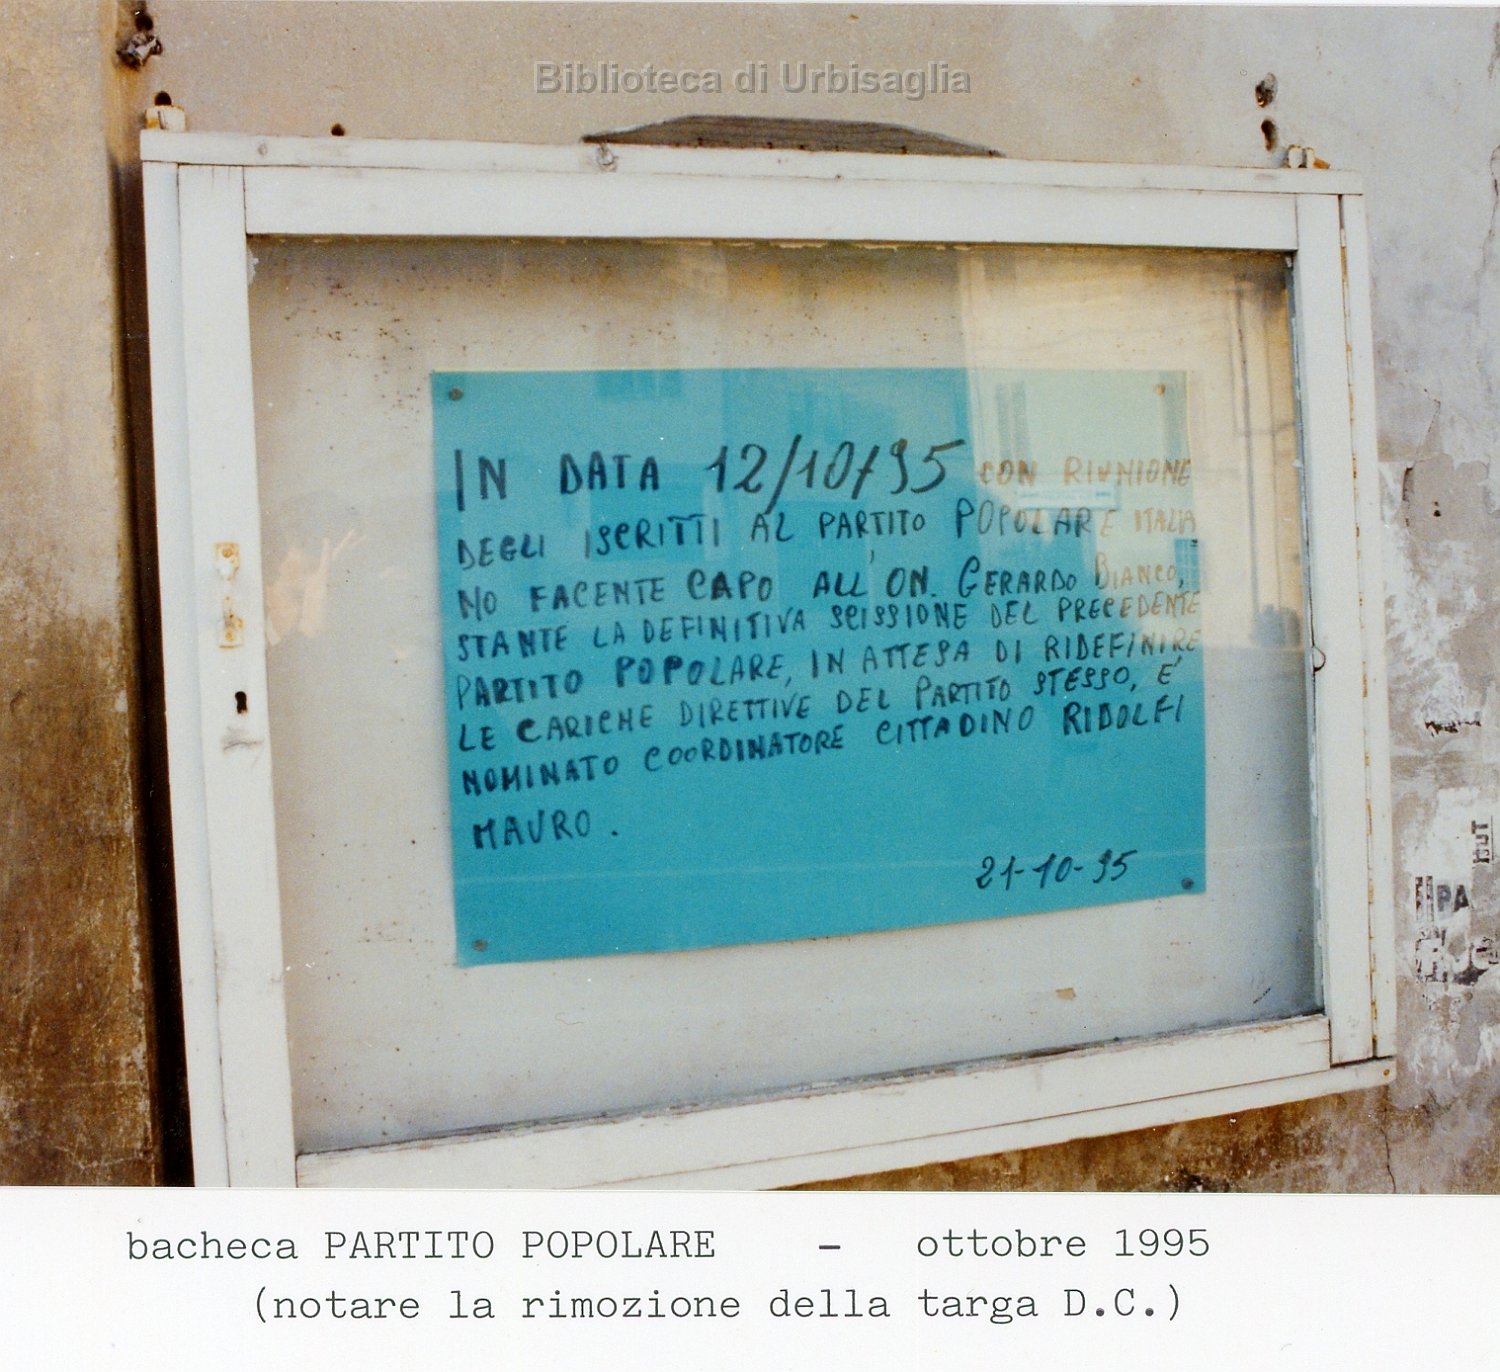 Biblioteca di Urbisaglia
IN DATA 12/10/95 CON RIUNIONE
DEGLI ISCRITTI AL PARTITO POPOLARE ITALIA
NO FACENTE CAPO ALL'ON. GERARDO BIANCO,
STANTE LA DEFINITIVA SCISSIONE DEL PRECEDENTE
PARTITO POPOLARE, IN ATTESA DI RIDEFINIRE
LE CARICHE DIRETTIVE DEL PARTITO STESSO, E'
NOMINATO COORDINATORE CITTADINO RIDOLFI
MAURO.
21-10-95
bacheca PARTITO POPOLARE - ottobre 1995
(notare la rimozione della targa D.C.)